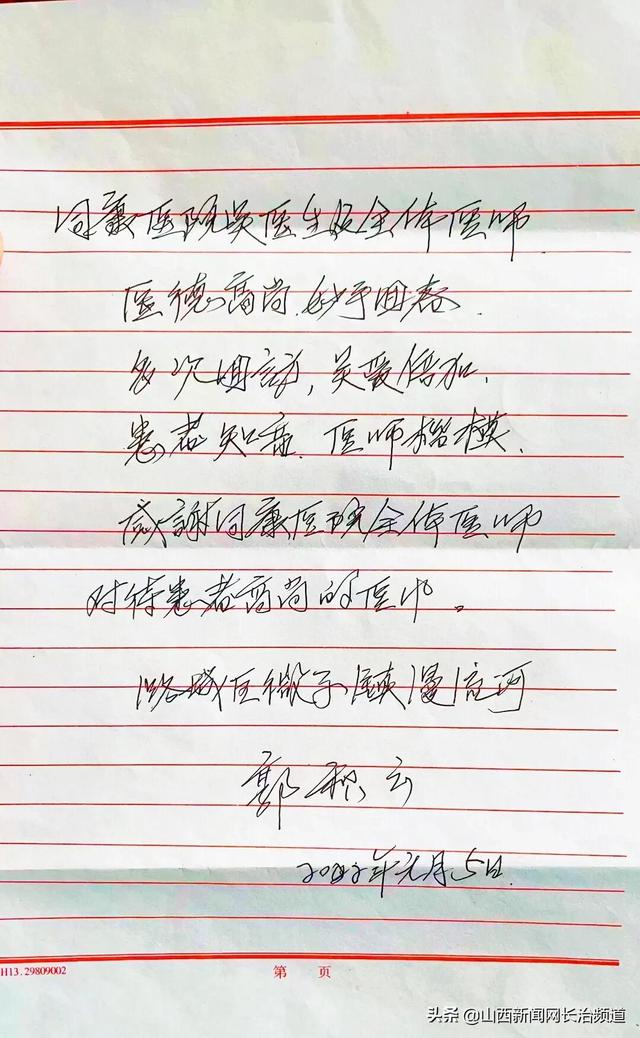 同康医院吴医生及全体医师
医德高尚.妙手回春.
多次因动,关爱倍加.
患者知音.医师楷模.
感謝同康医院全体医师
对待患者高尚的医巾。
潞城区微子镇漫流河
郭秋云
2022年元月5日.
H13.29809002
第 页
头条 @山西新闻网长治频道